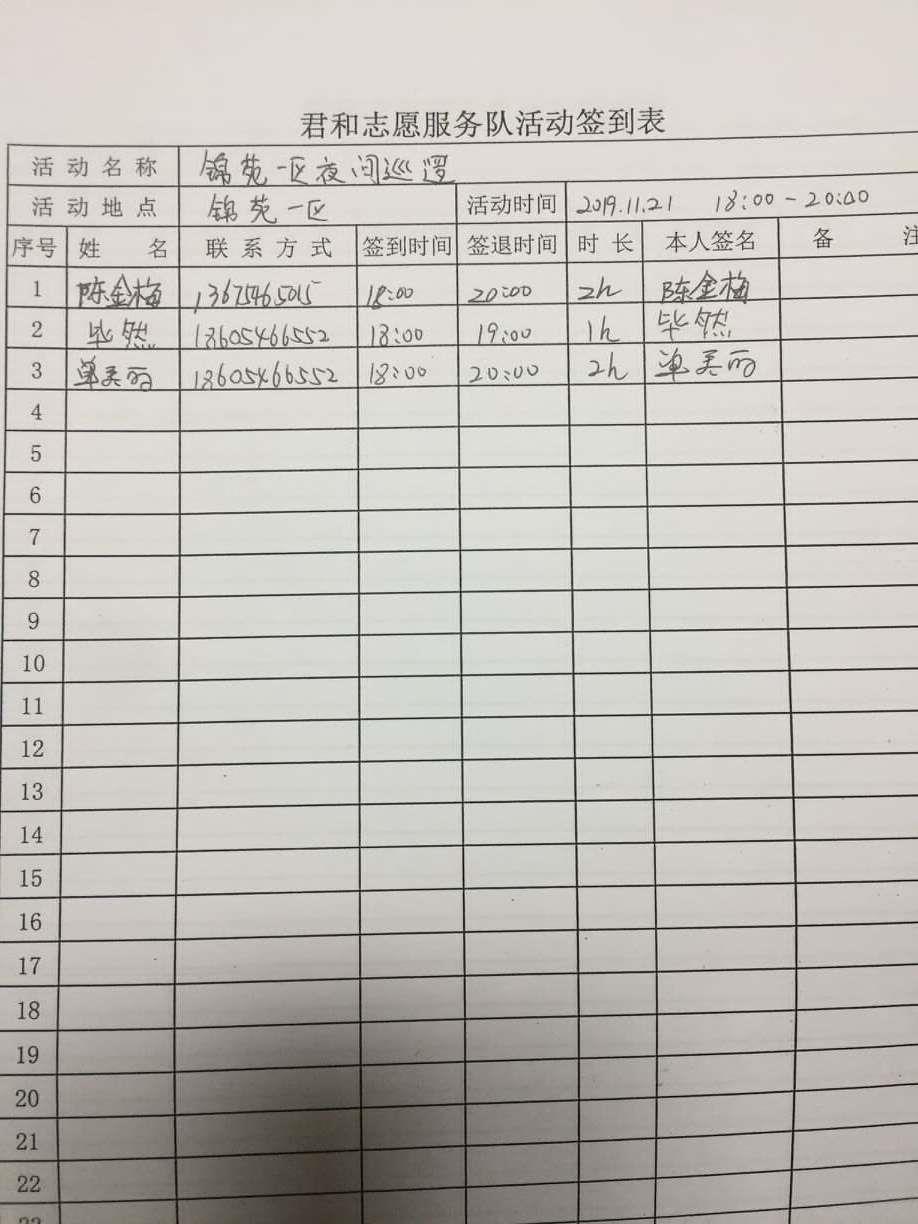 君和志愿服务队活动签到表
活动名称 锦苑一区夜间巡逻
活动地点 锦苑一区 活动时间 2019.11.21 18:00-20:00
序号 姓名 联系方式 签到时间 签退时间 时长 本人签名 备注
1 陈金梅 13675465015 18:00 20:00 2h 陈金梅
2 毕然 18605466552 18:00 19:00 1h 毕然
3 单美丽 18605466552 18:00 20:00 2h 单美丽
4
5
6
7
8
9
10
11
12
13
14
15
16
17
18
19
20
21
22